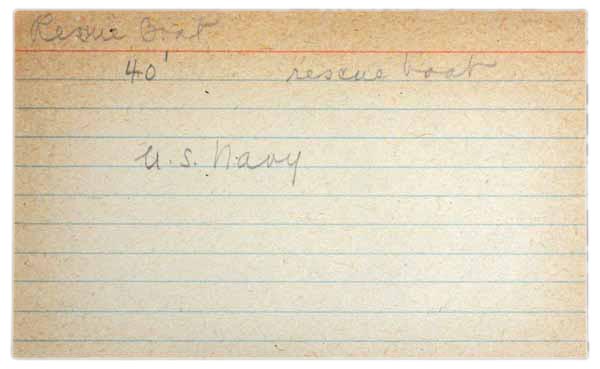 Rescue Boat
40' rescue boat
U.S. Navy